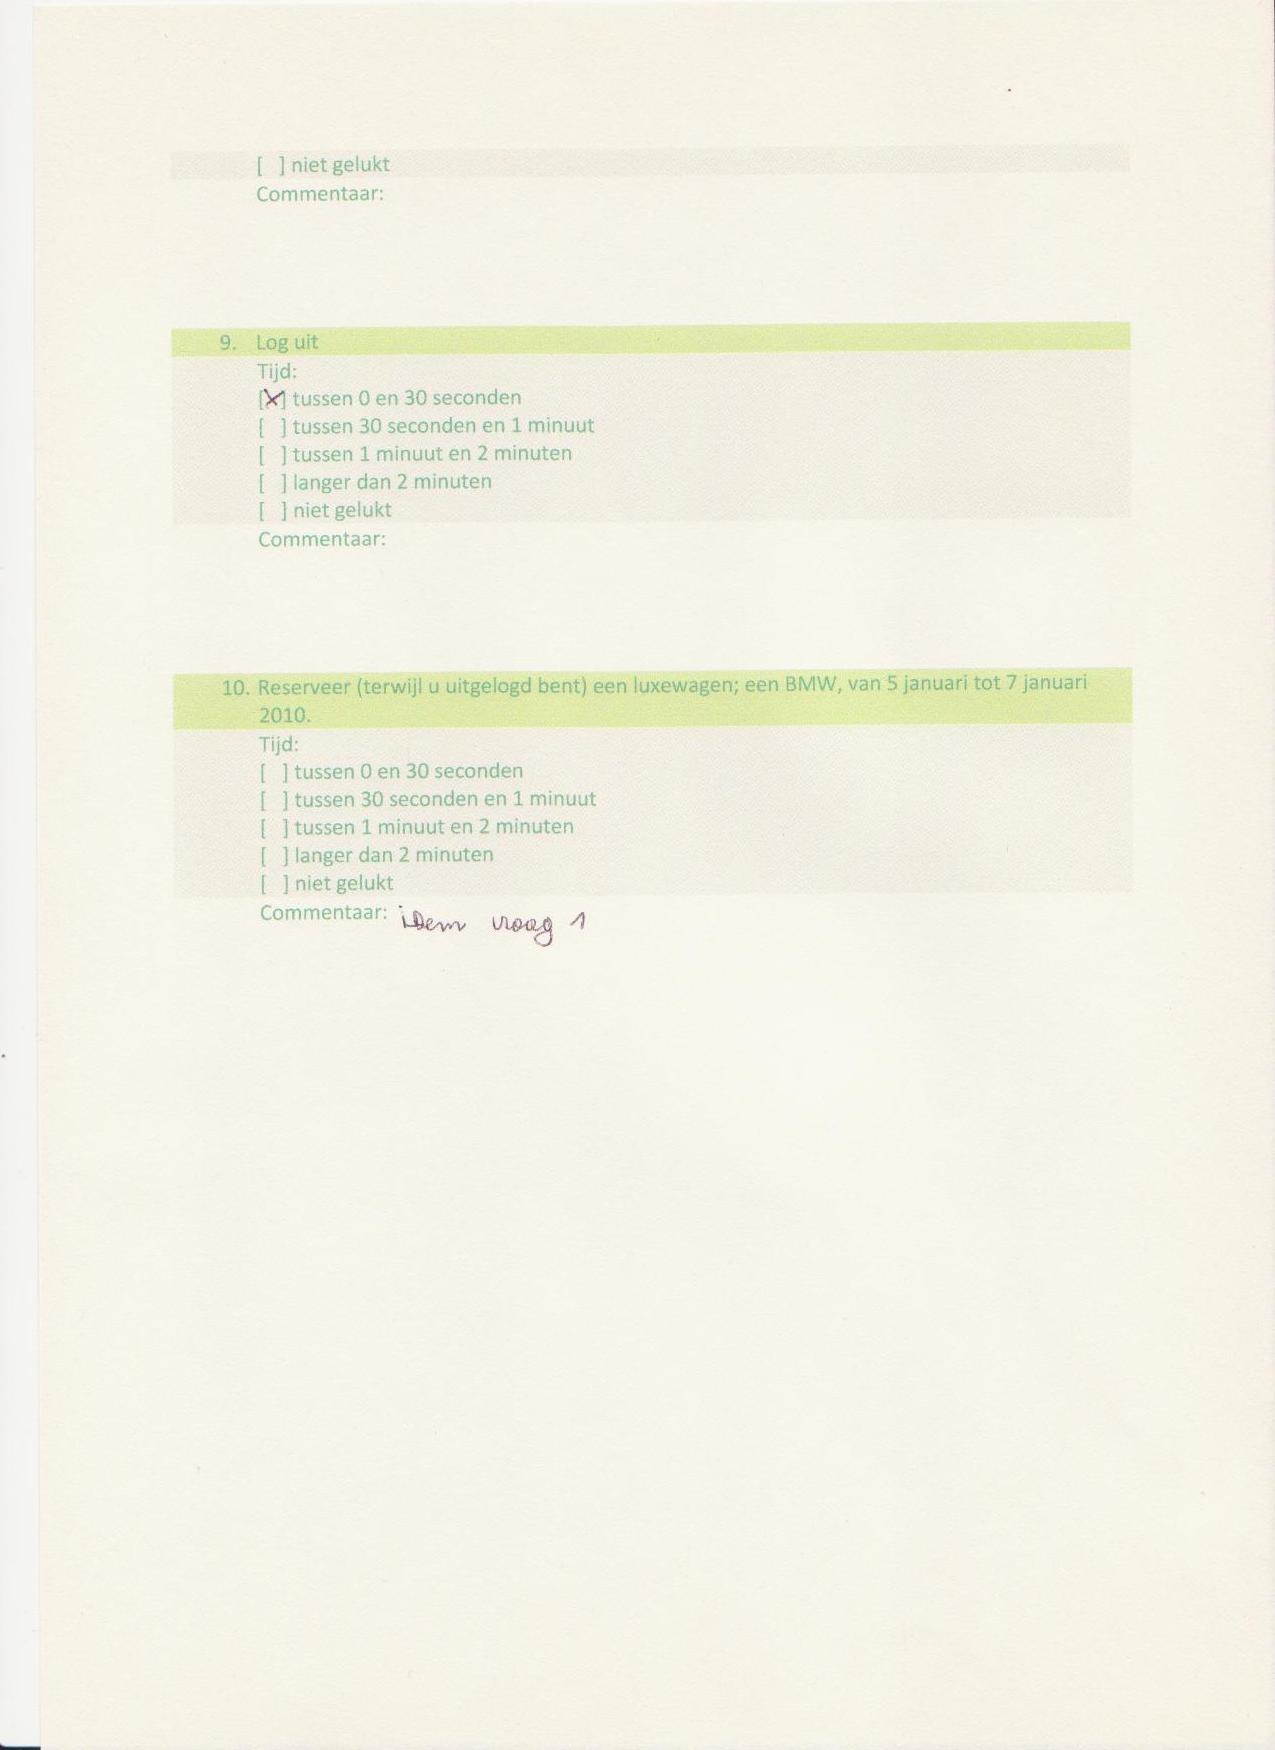 [ ] niet gelukt
Commentaar:
9. Log uit
Tijd:
[X] tussen 0 en 30 seconden
[ ] tussen 30 seconden en 1 minuut
[ ] tussen 1 minuut en 2 minuten
[ ] langer dan 2 minuten
[ ] niet gelukt
Commentaar:
10. Reserveer (terwijl u uitgelogd bent) een luxewagen; een BMW, van 5 januari tot 7 januari
2010.
Tijd:
[ ] tussen 0 en 30 seconden
[ ] tussen 30 seconden en 1 minuut
[ ] tussen 1 minuut en 2 minuten
[ ] langer dan 2 minuten
[ ] niet gelukt
Commentaar: idem vraag 1